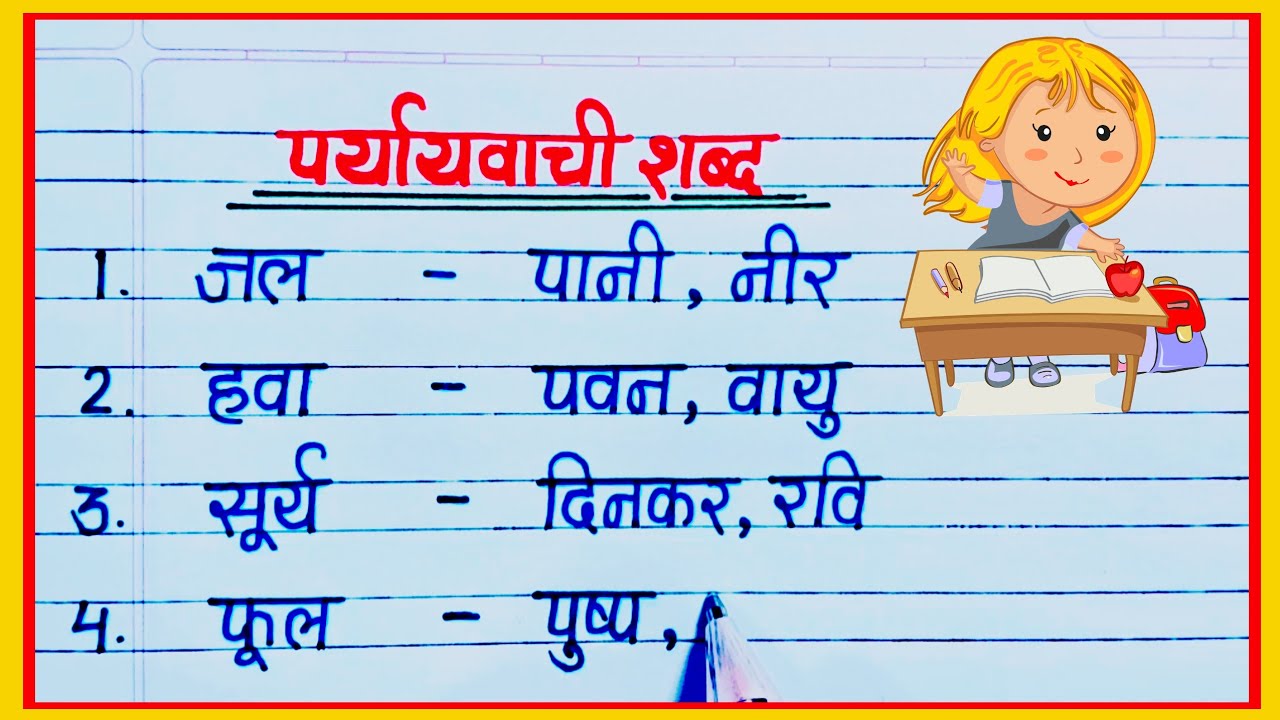 पर्यायवाची शब्द
1. जल - पानी, नीर
2. हवा - पवन, वायु
3. सूर्य - दिनकर, रवि
4. फूल - पुष्प,